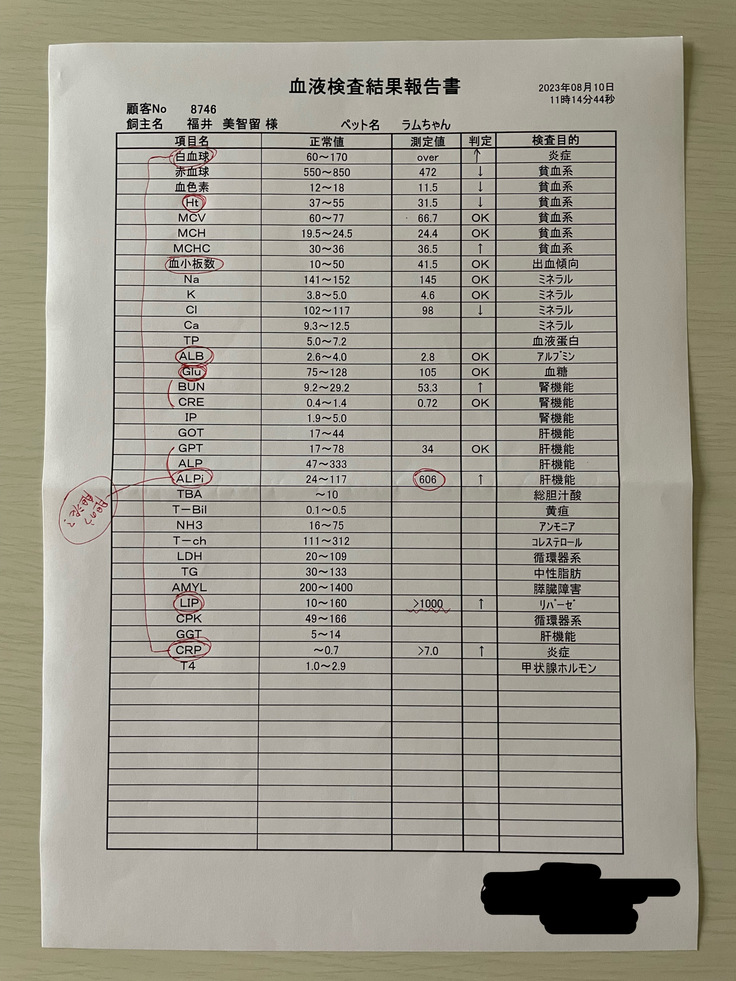 血液検査結果報告書
2023年08月10日
11時14分44秒
顧客No 8746
飼主名 福井 美智留 様 ペット名 ラムちゃん
項目名 正常値 測定値 判定 検査目的
白血球 60～170 over ↑ 炎症
赤血球 550～850 472 ↓ 貧血系
血色素 12～18 11.5 ↓ 貧血系
Ht 37～55 31.5 ↓ 貧血系
MCV 60～77 66.7 OK 貧血系
MCH 19.5～24.5 24.4 OK 貧血系
MCHC 30～36 36.5 ↑ 貧血系
血小板数 10～50 41.5 OK 出血傾向
Na 141～152 145 OK ミネラル
K 3.8～5.0 4.6 OK ミネラル
Cl 102～117 98 ↓ ミネラル
Ca 9.3～12.5 ミネラル
TP 5.0～7.2 血液蛋白
ALB 2.6～4.0 2.8 OK アルブミン
Glu 75～128 105 OK 血糖
BUN 9.2～29.2 53.3 ↑ 腎機能
CRE 0.4～1.4 0.72 OK 腎機能
IP 1.9～5.0 腎機能
GOT 17～44 肝機能
GPT 17～78 34 OK 肝機能
ALP 47～333 肝機能
ALPi 24～117 606 ↑ 肝機能
TBA ～10 総胆汁酸
T－Bil 0.1～0.5 黄疸
NH3 16～75 アンモニア
T－ch 111～312 コレステロール
LDH 20～109 循環器系
TG 30～133 中性脂肪
AMYL 200～1400 膵臓障害
LIP 10～160 >1000 ↑ リパーゼ
CPK 49～166 循環器系
GGT 5～14 肝機能
CRP ～0.7 >7.0 ↑ 炎症
T4 1.0～2.9 甲状腺ホルモン